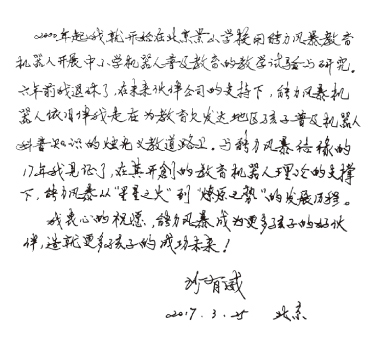 2000年起我就开始在北京景山学校用能力风暴教育
机器人开展中小学机器人普及教育的教学试验与研究。
六年前我退休了，在未来伙伴公司的支持下，能力风暴机
器人依旧伴我走在为教育欠发达地区孩子普及机器人
科普知识的炫光义教道路上。与能力风暴结缘的
17年我见证了，在其开创的教育机器人理论的支撑
下，能力风暴从“星星之火”到“燎原之势”的发展历程。
我衷心的祝愿，能力风暴成为更多孩子的好伙
伴，造就更多孩子的成功未来！
2017.3.25 北京